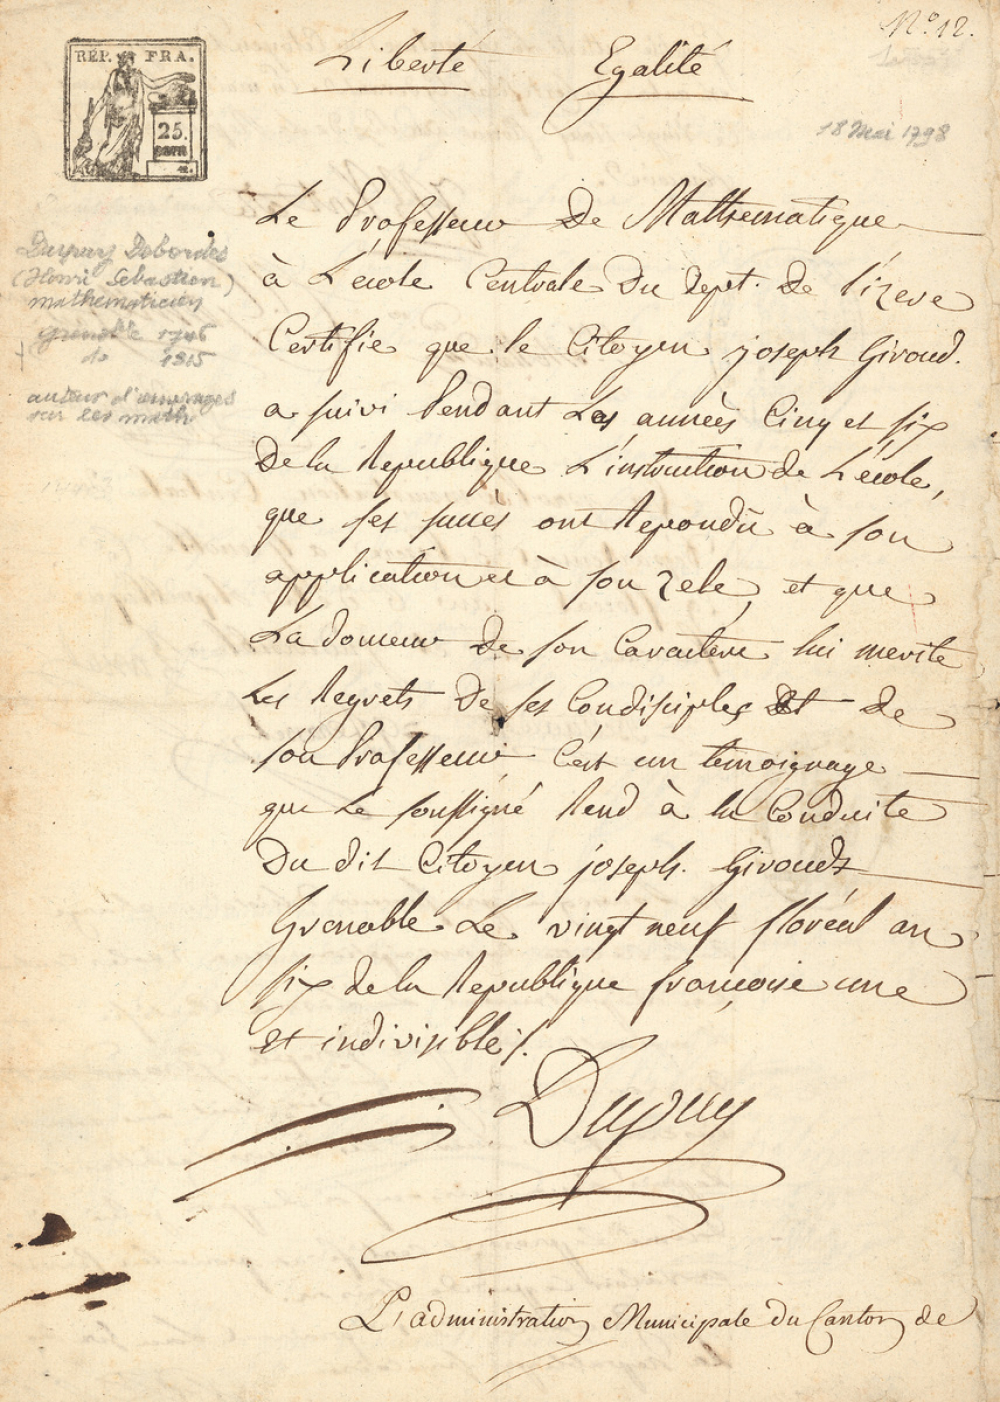 N.° 12.
RÉP. FRA.
25.
CENT.
Liberté Egalité
18 Mai 1798
Dupuy Debordes
(Henri Sébastien)
mathematicien
grenoble 1746
do 1815
auteur d'ouvrages
sur les math
Le Professeur De Mathematique
à L'école Centrale Du Dept. De l'izere
Certifie que le Citoyen joseph Giroud.
a suivi Pendant Les années Cinq et six
De la Republique L'instruction de L'école,
que ses succès ont Repondu à son
application et à son zele, et que
La douceur de son Caractere lui merite
Les Regrets De ses Condisiples Et de
son Professeur, C'est un temoignage
que Le soussigné Rend à la Conduite
Du dit Citoyen joseph. Giroud
Grenoble Le vingt neuf floréal an
six de la Republique françoise une
et indivisible /.
Dupuy
L'administration Municipale du Canton de